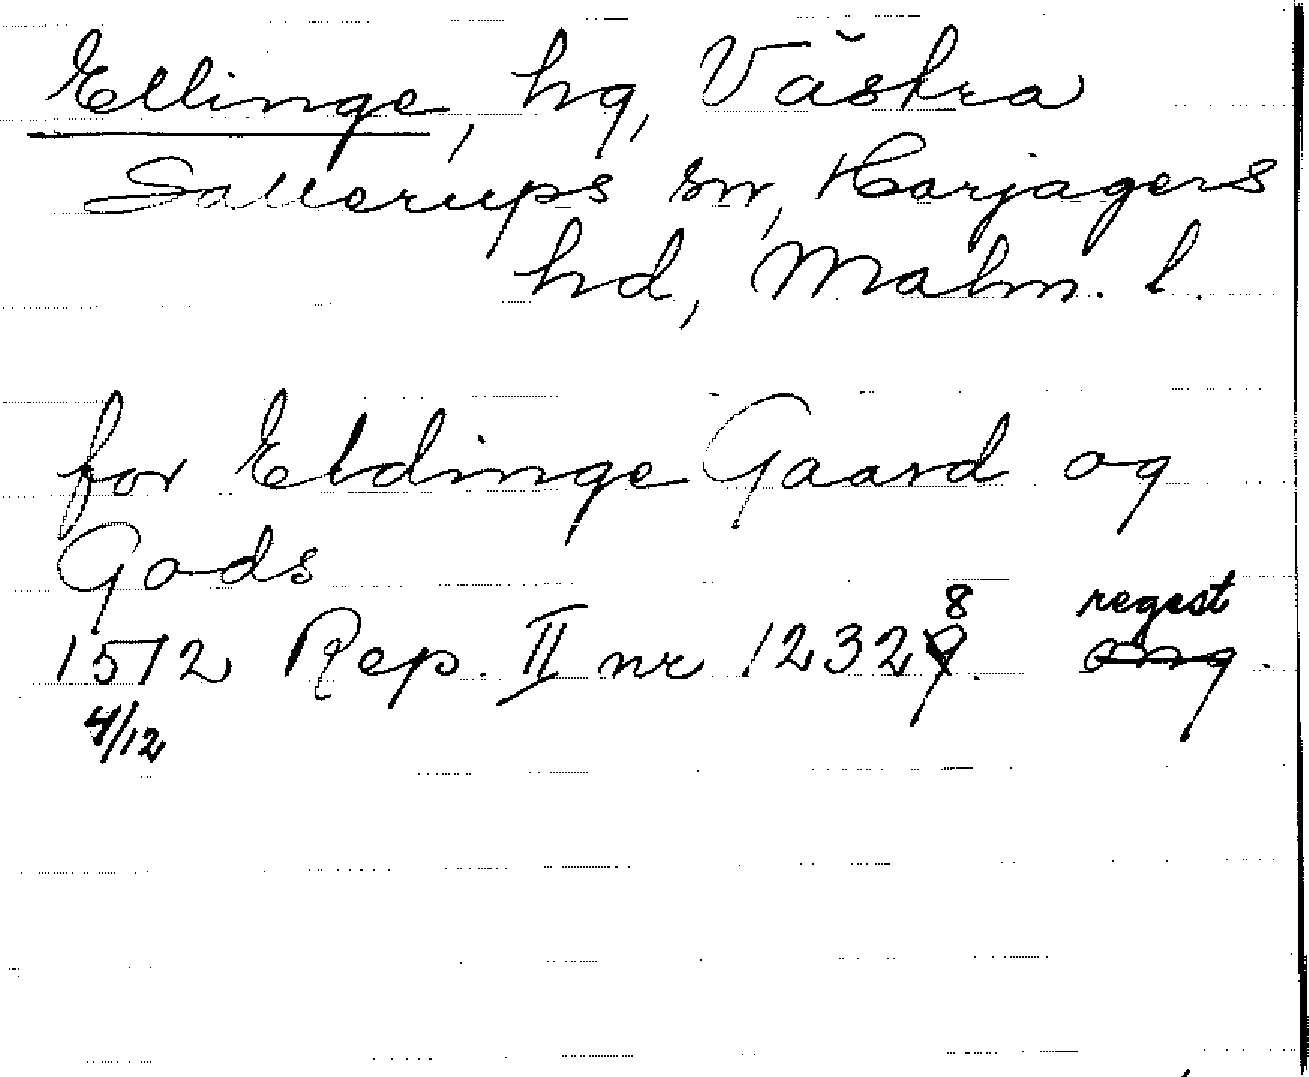 Ellinge, hg, Västra
Sallerups sn, Harjagers
hd, Malm. l.
for Eldinge Gaard og
Gods
1512 Rep. II nr 12328. regest
4/12